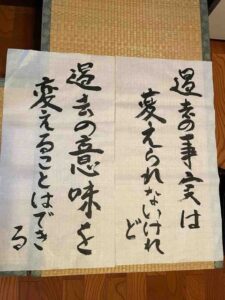 過去の事実は
変えられないけれ
ど
過去の意味を
変えることはでき
る